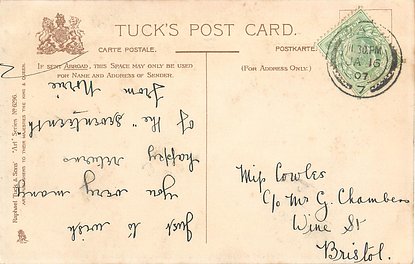 TUCK'S POST CARD.
CARTE POSTALE.
POSTKARTE.
IF SENT ABROAD, THIS SPACE MAY ONLY BE USED
FOR NAME AND ADDRESS OF SENDER.
(FOR ADDRESS ONLY.)
Just to wish
you very many
happy returns
of the "seventeenth"
from Norrie
Raphael Tuck & Sons' "Art" Series No 6296.
ART PUBLISHERS TO THEIR MAJESTIES THE KING & QUEEN.
30 PM
JA 16
07
7
Miss Cowles
c/o Mr G. Chambers
Wine St
Bristol.